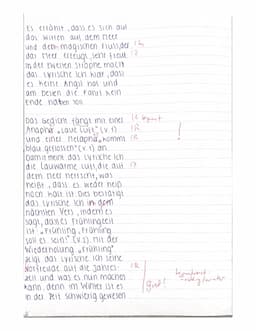 Es erwähnt, dass es sich auf
das Wirken auf dem Meer
und dem magischen Fluss, der
das Meer erzeugt, sehr freut.
In der zweiten Strophe macht
das Lyrische Ich klar, dass
es keine Angst hat und
am besten die Fahrt kein
Ende haben soll.
Das Gedicht fängt mit einer
Anapher „Laue Luft" (V. 1)
und einer Metapher „kommt
blau geflossen" (V. 1) an.
Damit meint das Lyrische Ich
die lauwarme Luft, die auf
dem Meer herrscht, was
heißt, dass es weder heiß
noch kalt ist. Dies bestätigt
das Lyrische Ich in dem
nächsten Vers, indem es
sagt, dass es Frühlingszeit
ist „Frühling, Frühling
soll es sein!" (V. 2). Mit der
Wiederholung „Frühling"
zeigt das Lyrische Ich seine
Vorfreude auf die Jahres-
zeit und was es nun machen
kann, denn im Winter ist es
in der Zeit schwierig gewesen
!
gut!